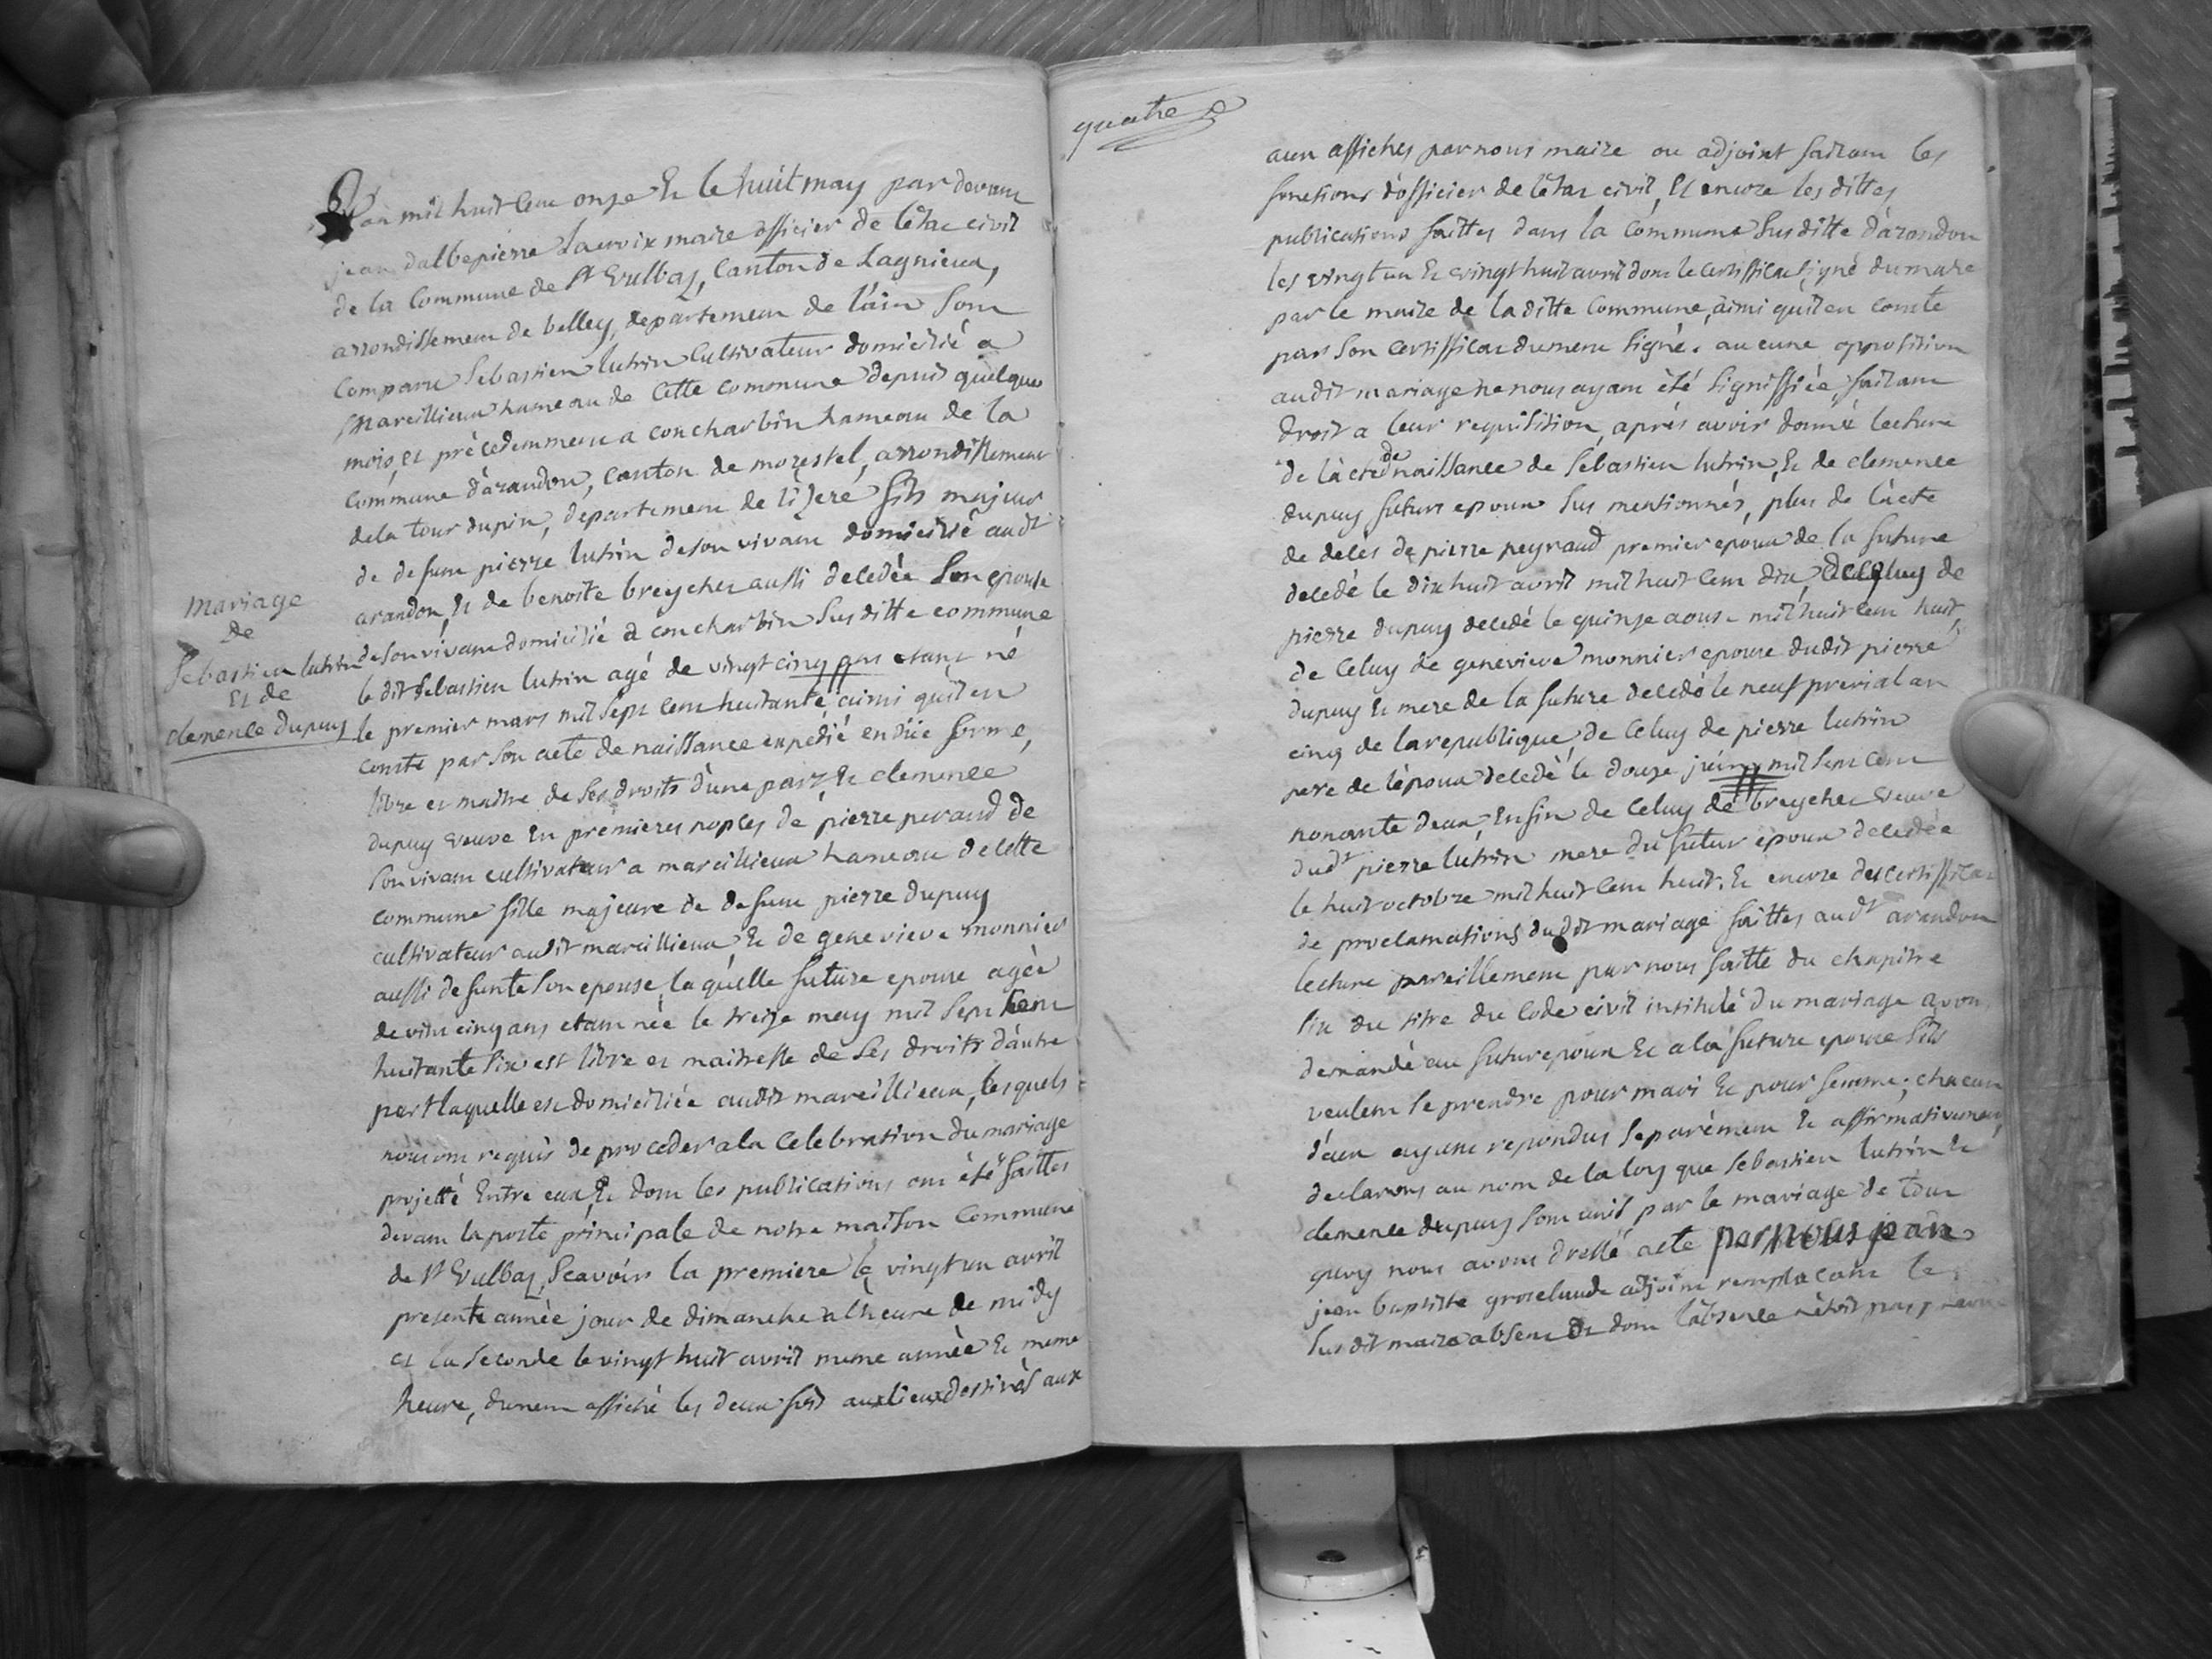 L'an mil huit cent onze Et le huit may par devant
jean dalbepierre Lacroix maire officier de l'état civil
de la Commune de St Vulbaz, Canton de Lagnieux,
arrondissement de belley, departement de l'ain sont
comparu Sebastien lutrin Cultivateur domicilié a
Mareillieux hameau de Cette commune depuis quelque
mois, et précedemment a concharbin hameau de la
Commune d'arandon, canton de morestel, arrondissement
de la tour dupin, departement de l'izere fils majeur
de defunt pierre lutrin de son vivant domicilié audt
arandon, Et de benoite breyches aussi decedée Son epouse
de son vivant domicilié a concharbin Sus ditte commune
le dit Sebastien lutrin agé de vingt cinq ans etant né
le premier mars mil sept cent huitante ainsi qu'il en
conste par son acte de naissance expedié en düe forme,
libre et maitre de ses droits d'une part Et clemence
dupuy veuve En premieres noples de pierre peraud de
son vivant cultivateur a mareillieux hameau de cette
commune fille majeure de defunt pierre dupuy
cultivateur audit mareillieux Et de genevieve monnier
aussi defunte son epouse, la qu'elle future epouse agée
de vint cinq ans etant née le treize may mil sept Cent
huitante six est libre et maitresse de ses droits d'autre
part laquelle est domiciliée audit mareillieux, lesquels
nous ont requis de proceder a la Celebration du mariage
projetté Entre eux, Et dont les publications ont été faittes
devant la porte principale de notre maison Commune
de St Vulbaz, Scavoir la premiere le vingt un avril
presente année jour de dimanche a l'heure de midy
et la seconde le vingt huit avril meme année Et meme
heure, dument affiché les deux fois aux lieux destinés aux
mariage
de
Sebastien lutrin
Et de
clemence dupuy
quatre
aux affiches par nous maire ou adjoint faisant les
fonctions d'officier de l'etat civil, Et encore les dittes
publications faittes dans la Commune Susditte d'arandon
les vingt un Et vingt huit avril dont le certifficat signé du maire
par le maire de la ditte Commune, ainsi qu'il en conste
par son certifficat dument signé. aucune opposition
audit mariage ne nous ayant été signiffiée, faisant
droit a leur requisition, aprés avoir donné lecture
de l'acte de naissance de Sebastien lutrin, Et de clemence
dupuy futurs epoux sus mentionnés, plus de l'acte
de deces de pierre peyraud premier epoux de la future
decedé le dix huit avril mil huit cent dix, de celuy de
pierre dupuy decedé le quinze aoust mil huit cent huit,
de Celuy de genevieve monnier epouse dudit pierre
dupuy Et mere de la future decedé le neuf prerial an
cinq de la republique, de Celuy de pierre lutrin
pere de l'epoux decedé le douze juin mil sept cent
nonante deux, Enfin de Celuy de breyches veuve
dudt pierre lutrin mere du futur epoux decedée
le huit octobre mil huit cent huit. Et encore des certifficat
de proclamations dudit mariage faittes audt arandon
lecture pareillement par nous faitte du chapitre
six du titre du Code civil intitulé du mariage avons
demandé au futur epoux Et a la future epouse S'ils
veulent se prendre pour mari Et pour femme; chacun
d'eux ayant repondus separément Et affirmativement,
declarons au nom de la loy que Sebastien lutrin Et
clemence dupuy sont unis par le mariage de tout
quoy nous avons dressé acte par nous pan
jean baptiste groselande adjoint remplacant le
Susdit maire absent Et dont l'absence n'étoit pas